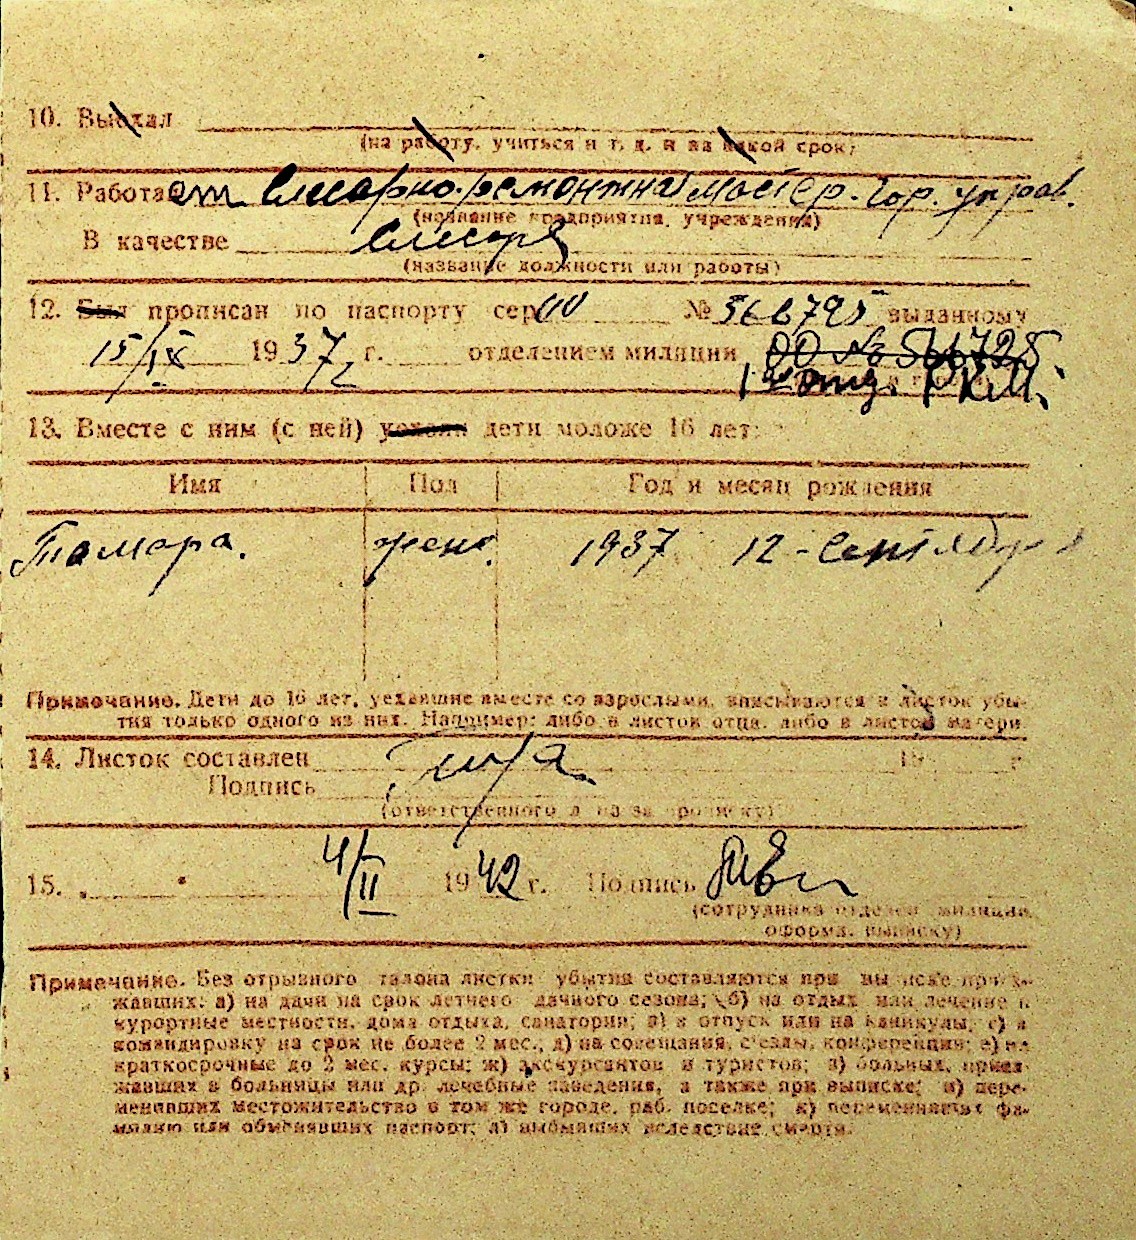 10. Выехал
(на работу, учиться и т. д. и на какой срок)
11. Работает Слесарно-ремонтная мастер. Гор. управ.
(название предприятия, учреждения)
В качестве слесаря
(название должности или работы)
12. Был прописан по паспорту сер № выданному
15/IX 1937 г. отделением милиции
1 отд. РКМ.
13. Вместе с ним (с ней) уехали дети моложе 16 лет:
Имя Пол Год и месяц рождения
Тамара. женс. 1937 12 - Сентября
Примечание. Дети до 16 лет, уехавшие вместе со взрослыми, вписываются в листок убы-
тия только одного из них. Например: либо в листок отца, либо в листок матери.
14. Листок составлен 19 г.
Подпись
(ответственного лица за прописку)
15. 4/II 1942 г. Подпись
(сотрудника отделен. милиции,
оформл. выписку)
Примечание. Без отрывного талона листки убытия составляются при выписке приез-
жавших: а) на дачи на срок летнего дачного сезона; б) на отдых или лечение в
курортные местности, дома отдыха, санатории; в) в отпуск или на каникулы; г) в
командировку на срок не более 2 мес., д) на совещания, съезды, конференции; е) на
краткосрочные до 2 мес. курсы; ж) экскурсантов и туристов; з) больных, приез-
жавших в больницы или др. лечебные заведения, а также при выписке; и) пере-
менивших местожительство в том же городе, раб. поселке; к) переменивших фа-
милию или обменявших паспорт; л) выбывших вследствие смерти.